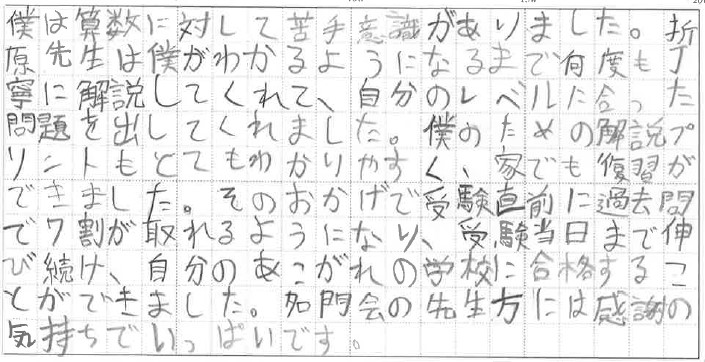 僕は算数に対して苦手意識がありました。折
原先生は僕がわかるようになるまで何度も丁
寧に解説してくれて、自分のレベルに合った
問題を出してくれました。僕のための解説プ
リントもとてもわかりやすく、家でも復習が
できました。そのおかげで受験直前に過去問
で7割が取れるようになり、受験当日まで伸
び続け、自分のあこがれの学校に合格するこ
とができました。名門会の先生方には感謝の
気持ちでいっぱいです。